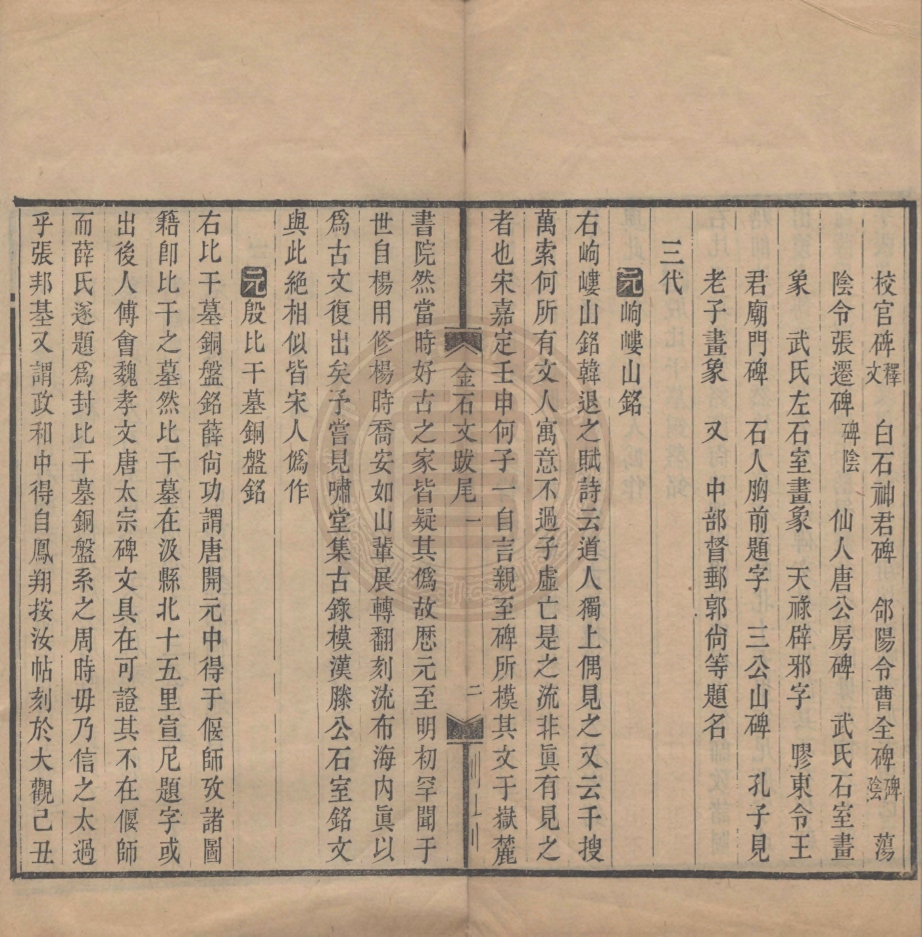 校官碑釋文　白石神君碑　郃陽令曹全碑碑陰　蕩
陰令張遷碑碑陰　仙人唐公房碑　武氏石室畫
象　武氏左石室畫象　天祿辟邪字　膠東令王
君廟門碑　石人胸前題字　三公山碑　孔子見
老子畫象　又　中部督郵郭尙等題名
三代
元岣嶁山銘
右岣嶁山銘韓退之賦詩云道人獨上偶見之又云千搜
萬索何所有文人寓意不過子虛亡是之流非眞有見之
者也宋嘉定壬申何子一自言親至碑所模其文于嶽麓
金石文跋尾一　二
書院然當時好古之家皆疑其僞故歷元至明初罕聞于
世自楊用修楊時喬安如山輩展轉翻刻流布海內眞以
爲古文復出矣予嘗見嘯堂集古錄模漢滕公石室銘文
與此絕相似皆宋人僞作
元殷比干墓銅盤銘
右比干墓銅盤銘薛尙功謂唐開元中得于偃師攷諸圖
籍卽比干之墓然比干墓在汲縣北十五里宣尼題字或
出後人傅會魏孝文唐太宗碑文具在可證其不在偃師
而薛氏遂題爲封比干墓銅盤系之周時毋乃信之太過
乎張邦基又謂政和中得自鳳翔按汝帖刻於大觀己丑